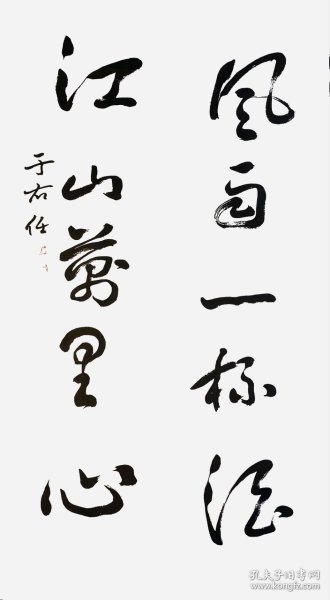 風雨一杯酒
江山萬里心
于右任
孔夫子旧书网